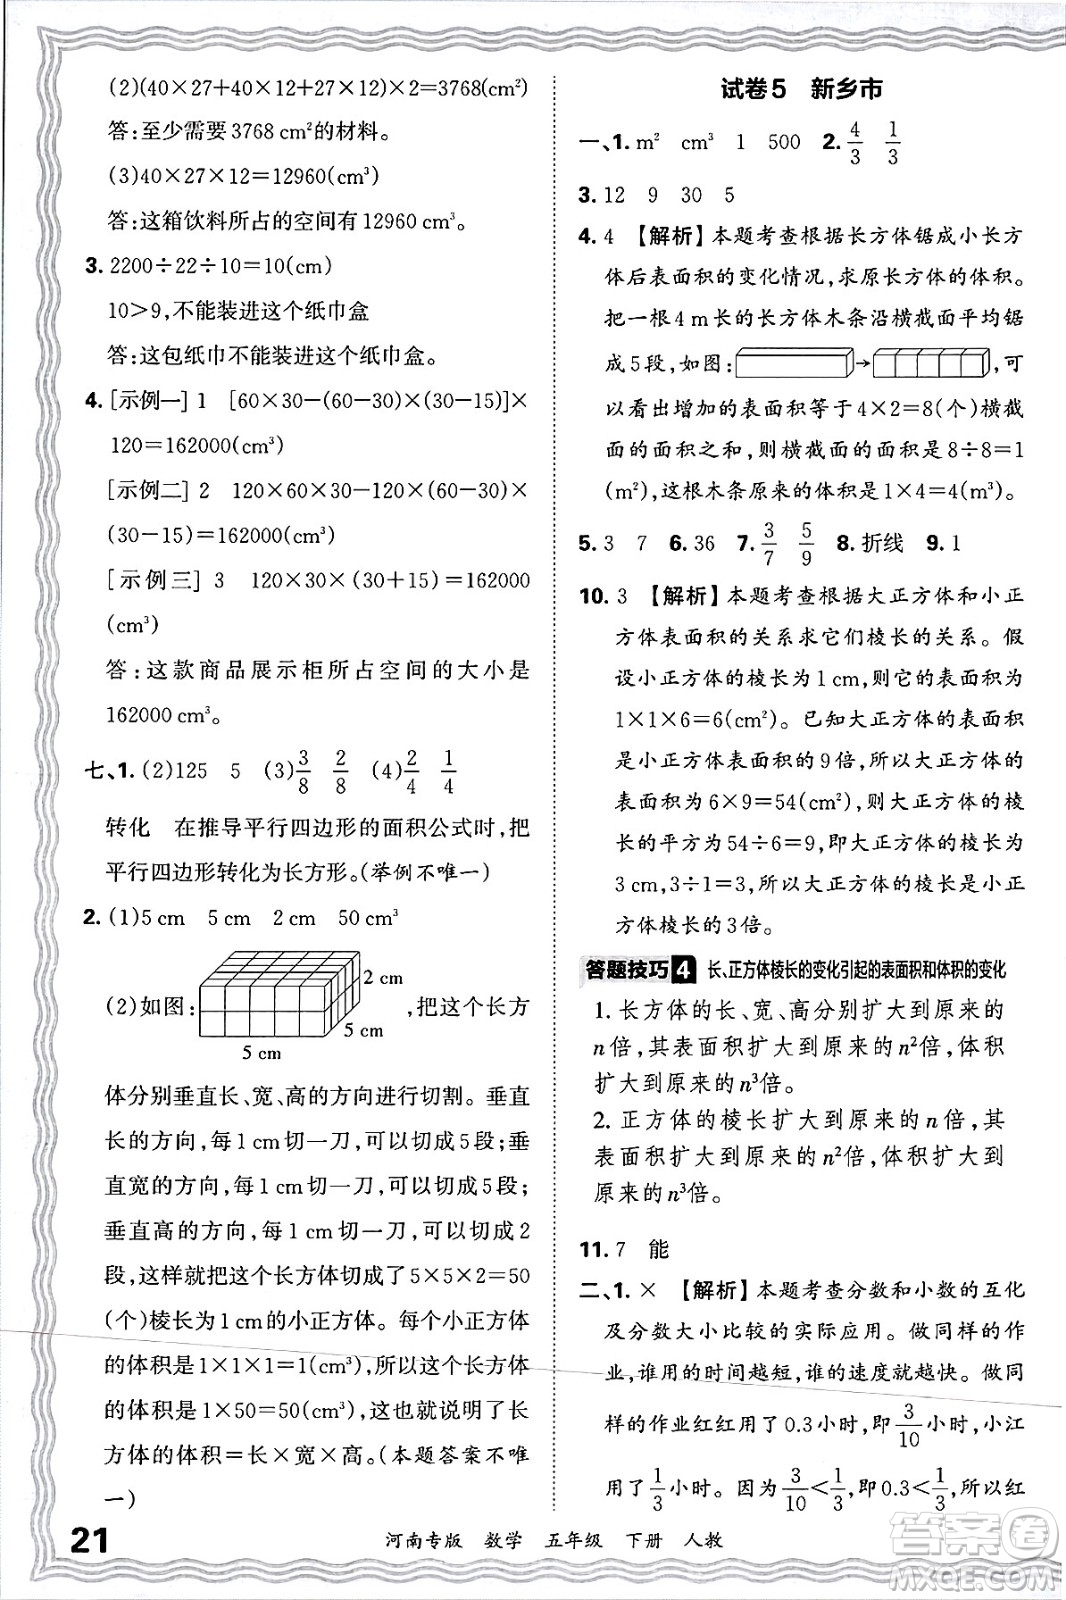 (2)(40×27+40×12+27×12)×2=3768(cm²)
答:至少需要 3768 cm²的材料。
(3)40×27×12=12960(cm³)
答:这箱饮料所占的空间有 12960 cm³。
3. 2200÷22÷10=10(cm)
10>9,不能装进这个纸巾盒
答:这包纸巾不能装进这个纸巾盒。
4. [示例一] 1 [60×30-(60-30)×(30-15)]×
120=162000(cm³)
[示例二] 2 120×60×30-120×(60-30)×
(30-15)=162000(cm³)
[示例三] 3 120×30×(30+15)=162000
(cm³)
答:这款商品展示柜所占空间的大小是
162000 cm³。
七、1. (2)125 5 (3)3/8 2/8 (4)2/4 1/4
转化 在推导平行四边形的面积公式时,把
平行四边形转化为长方形。(举例不唯一)
2. (1)5 cm 5 cm 2 cm 50 cm³
(2)如图: 2 cm 5 cm 5 cm ,把这个长方
体分别垂直长、宽、高的方向进行切割。垂直
长的方向,每 1 cm 切一刀,可以切成 5 段;垂
直宽的方向,每 1 cm 切一刀,可以切成 5 段;
垂直高的方向,每 1 cm 切一刀,可以切成 2
段,这样就把这个长方体切成了 5×5×2=50
(个)棱长为 1 cm 的小正方体。每个小正方体
的体积是 1×1×1=1(cm³),所以这个长方体
的体积是 1×50=50(cm³),进而说明了长方
体的体积=长×宽×高。(本题答案不唯
一)
试卷5 新乡市
一、1. m² cm³ 1 500 2. 4/3 1/3
3. 12 9 30 5
4. 4 【解析】本题考查根据长方体锯成小长方
体后表面积的变化情况,求原长方体的体积。
把一根 4 m 长的长方体木条沿横截面平均锯
成 5 段,如图: → ,可
以看出增加的表面积等于 4×2=8(个)横截
面的面积之和,则横截面的面积是 8÷8=1
(m²),这根木条原来的体积是 1×4=4(m³)。
5. 3 7 6. 36 7. 3/7 5/9 8. 折线 9. 1
10. 3 【解析】本题考查根据大正方体和小正
方体表面积的关系求它们棱长的关系。假
设小正方体的棱长为 1 cm,则它的表面积为
1×1×6=6(cm²)。已知大正方体的表面积
是小正方体表面积的 9 倍,所以大正方体的
表面积为 6×9=54(cm²),则大正方体的棱
长的平方为 54÷6=9,即大正方体的棱长为
3 cm,3÷1=3,所以大正方体的棱长是小正
方体棱长的 3 倍。
答题技巧4 长、正方体棱长的变化引起的表面积和体积的变化
1. 长方体的长、宽、高分别扩大到原来的
n 倍,其表面积扩大到原来的n²倍,体积
扩大到原来的n³倍。
2. 正方体的棱长扩大到原来的 n 倍,其
表面积扩大到原来的n²倍,体积扩大到
原来的n³倍。
11. 7 能
二、1. × 【解析】本题考查分数和小数的互化
及分数大小比较的实际应用。做同样的作
业,谁用的时间越短,谁的速度就越快。做同
样的作业红红用了 0.3 小时,即 3/10 小时,小江
用了 1/3 小时。因为 3/10<1/3,即 0.3<1/3,所以红
21 河南专版 数学 五年级 下册 人教
答案圈
MXQE.COM